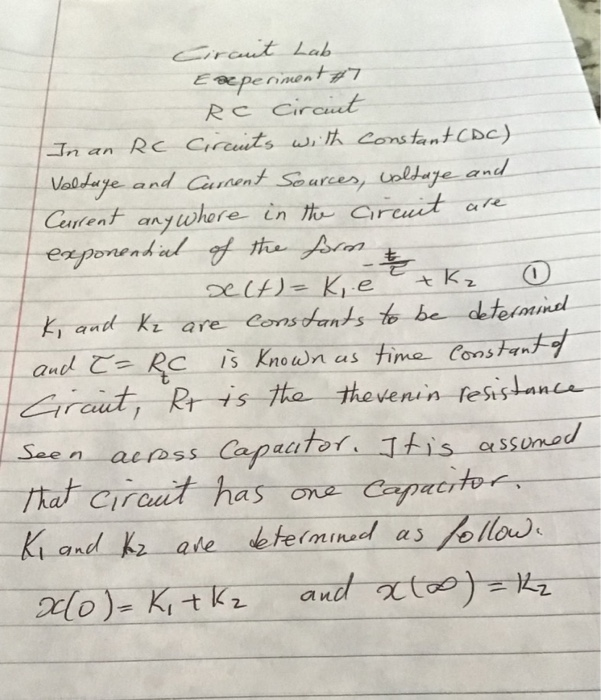 Circuit Lab
Experiment #7
RC Circuit
In an RC Circuits with Constant (DC)
Voltage and Current Sources, voltage and
Current anywhere in the Circuit are
exponential of the form
x(t) = K₁.e^(-t/τ) + K₂ ①
K₁ and K₂ are Constants to be determind
and τ = RtC is Known as time Constant of
Circuit, Rt is the thevenin resistance
Seen across Capacitor. It is assumed
that circuit has one Capacitor.
K₁ and K₂ are determined as follow.
x(0) = K₁ + K₂ and x(∞) = K₂